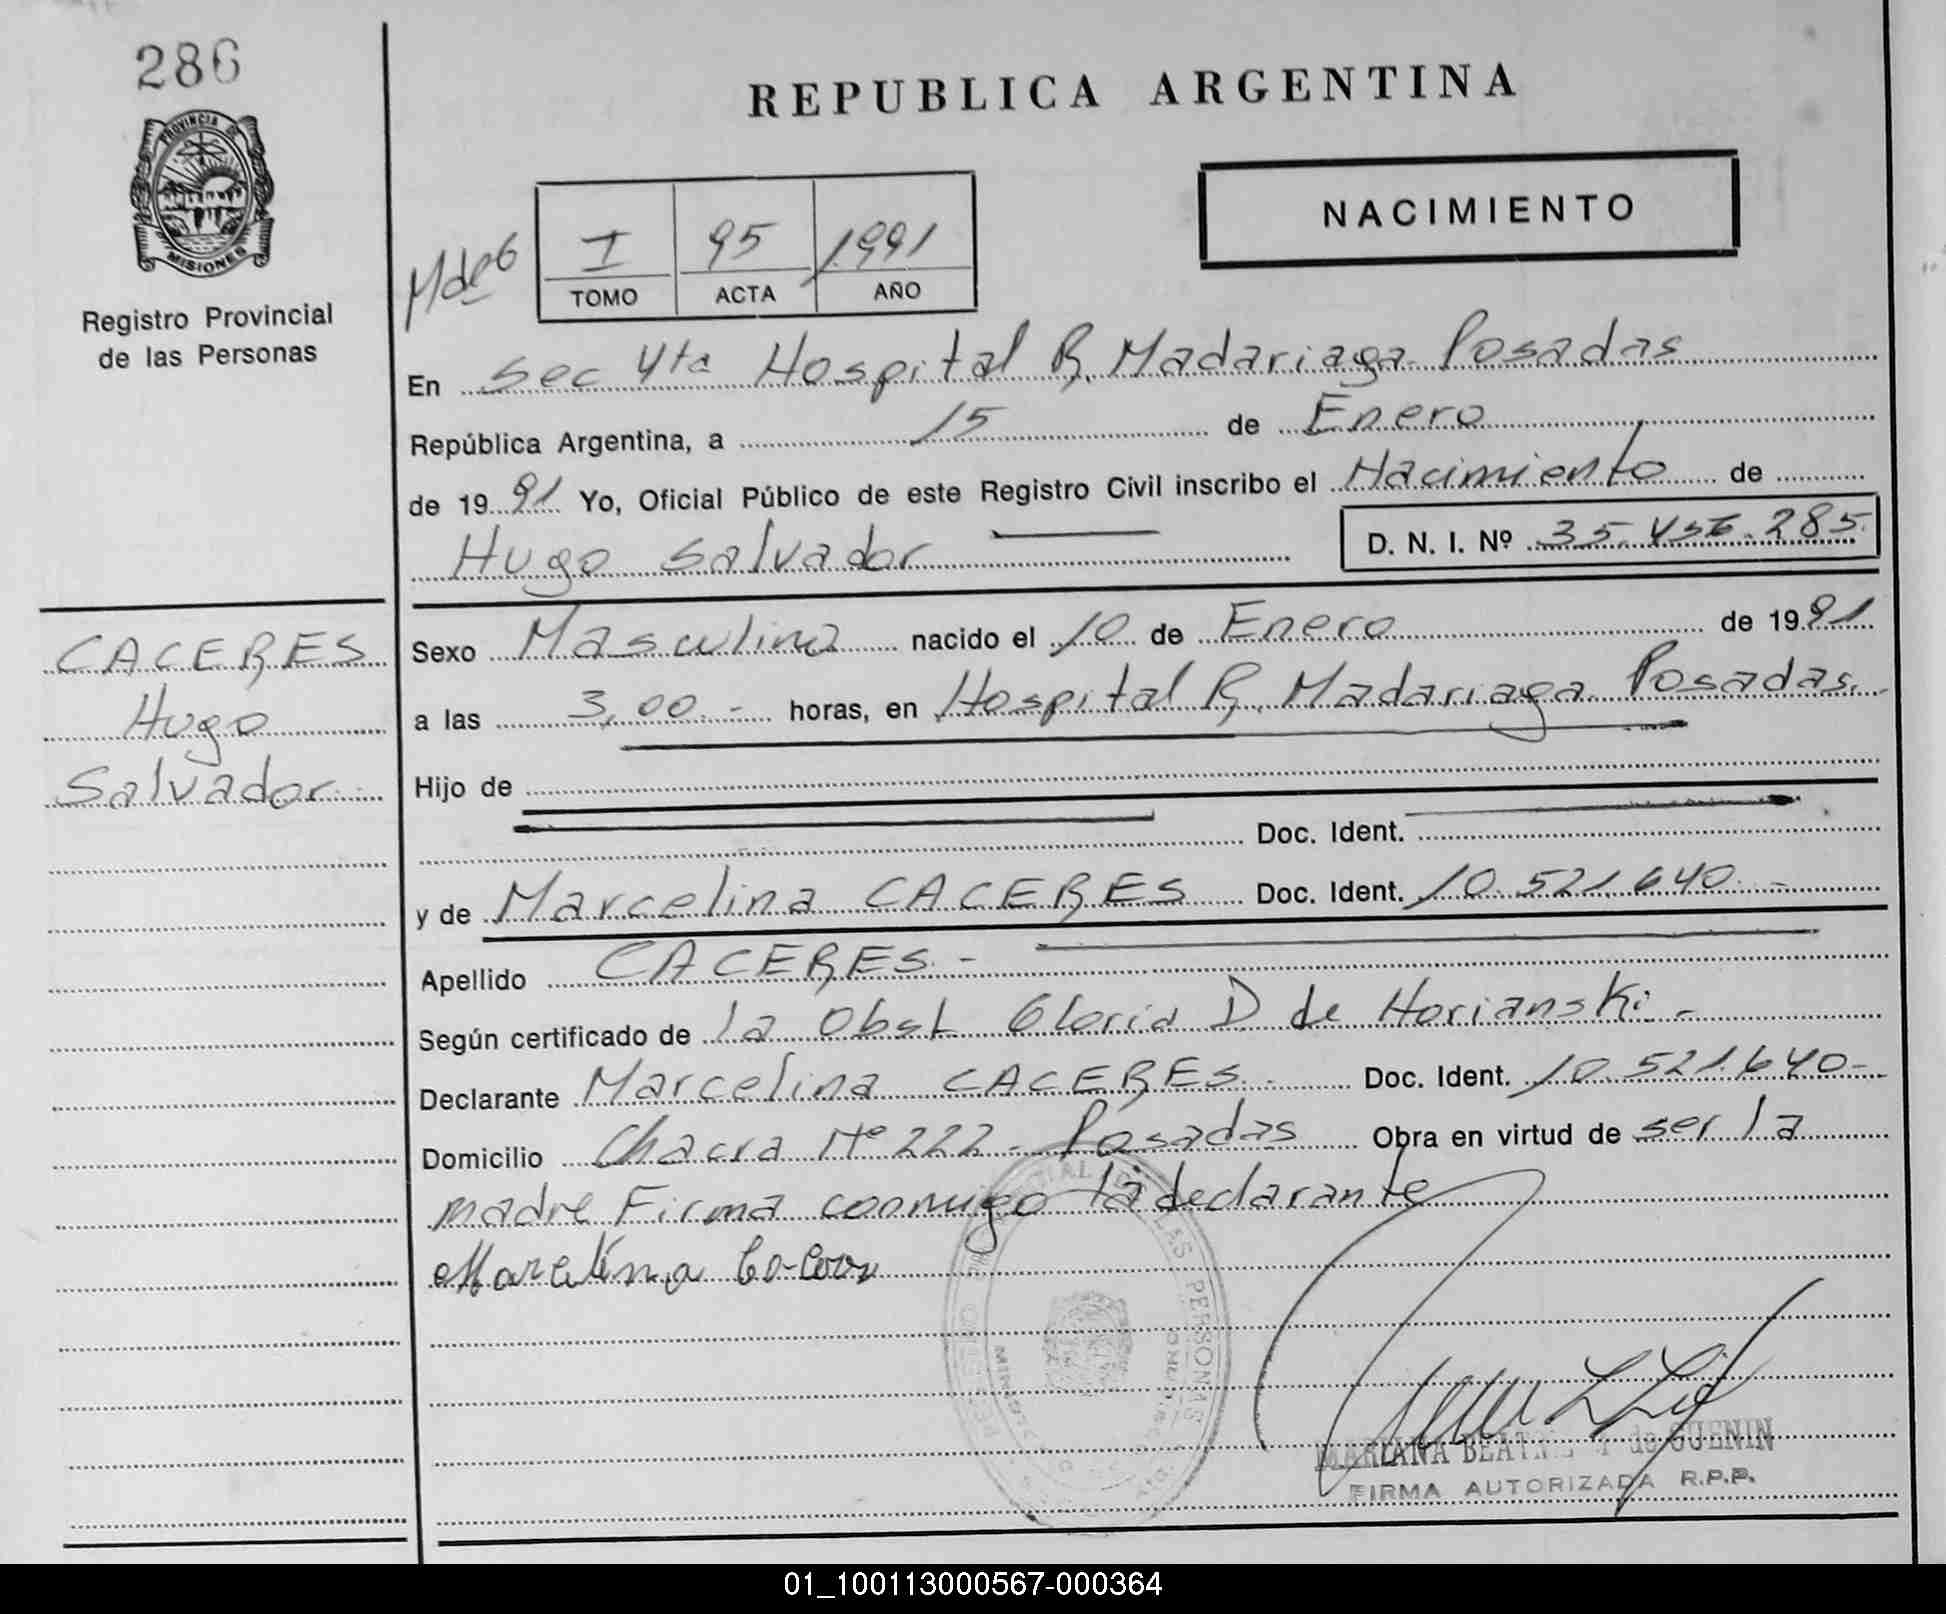 286
REPUBLICA ARGENTINA
PROVINCIA DE
MISIONES
Registro Provincial
de las Personas
I 95 1991
TOMO ACTA AÑO
NACIMIENTO
En Sec 4ta Hospital R. Madariaga Posadas
República Argentina, a 15 de Enero
de 1991 Yo, Oficial Público de este Registro Civil inscribo el Nacimiento de
Hugo Salvador D. N. I. Nº 35. 456. 285.
CACERES
Hugo
Salvador
Sexo Masculino nacido el 10 de Enero de 1991
a las 3,00.- horas, en Hospital R. Madariaga Posadas.
Hijo de
Doc. Ident.
y de Marcelina CACERES Doc. Ident. 10.521.640.-
Apellido CACERES.-
Según certificado de la Obst Gloria D de Horianski.-
Declarante Marcelina CACERES.- Doc. Ident. 10.521.640-
Domicilio Chacra Nº 222- Posadas Obra en virtud de ser la
madre Firma conmigo la declarante
Marcelina
MARIANA de GUENIN
FIRMA AUTORIZADA R.P.P.
01_100113000567-000364